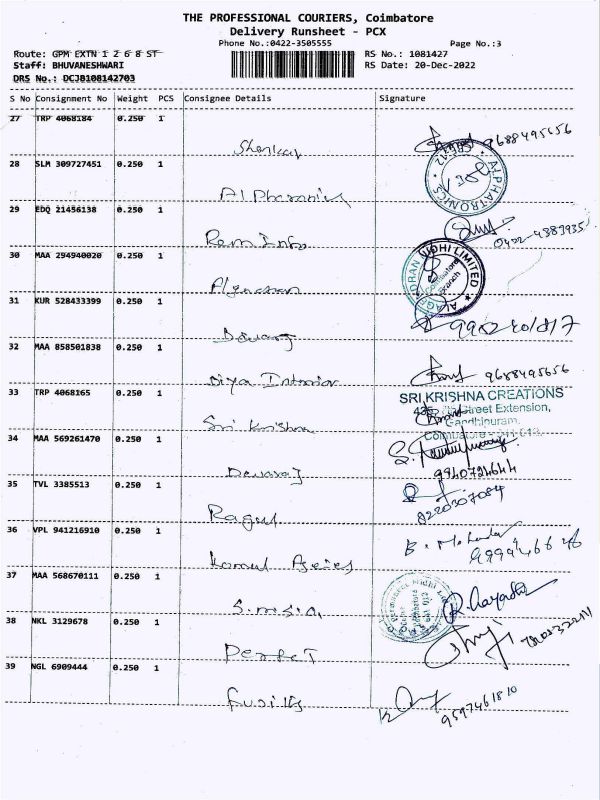 THE PROFESSIONAL COURIERS, Coimbatore
Delivery Runsheet - PCX
Phone No.:0422-3505555
Page No.:3
Route: GPM EXTN 1 2 6 8 ST
RS No.: 1081427
Staff: BHUVANESHWARI
RS Date: 20-Dec-2022
DRS No.: DCJB108142703
S No Consignment No Weight PCS Consignee Details Signature
27 TRP 4068184 0.250 1
9688495656
28 SLM 309727451 0.250 1
ALPHATRONICS
29 EDQ 21456138 0.250 1
Ram Info
30 MAA 294940020 0.250 1
NIDHI LIMITED
Coimbatore
Branch
31 KUR 528433399 0.250 1
Devaraj
32 MAA 858501838 0.250 1
9688495656
Diya Interior
33 TRP 4068165 0.250 1
SRI KRISHNA CREATIONS
Street Extension,
Gandhipuram,
Sri Krishna
34 MAA 569261470 0.250 1
Devaraj
9940724644
35 TVL 3385513 0.250 1
Ragul
8220307084
36 VPL 941216910 0.250 1
37 MAA 568670111 0.250 1
S.M.S.A.
38 NKL 3129678 0.250 1
Perfect
39 NGL 6909444 0.250 1
9597461810